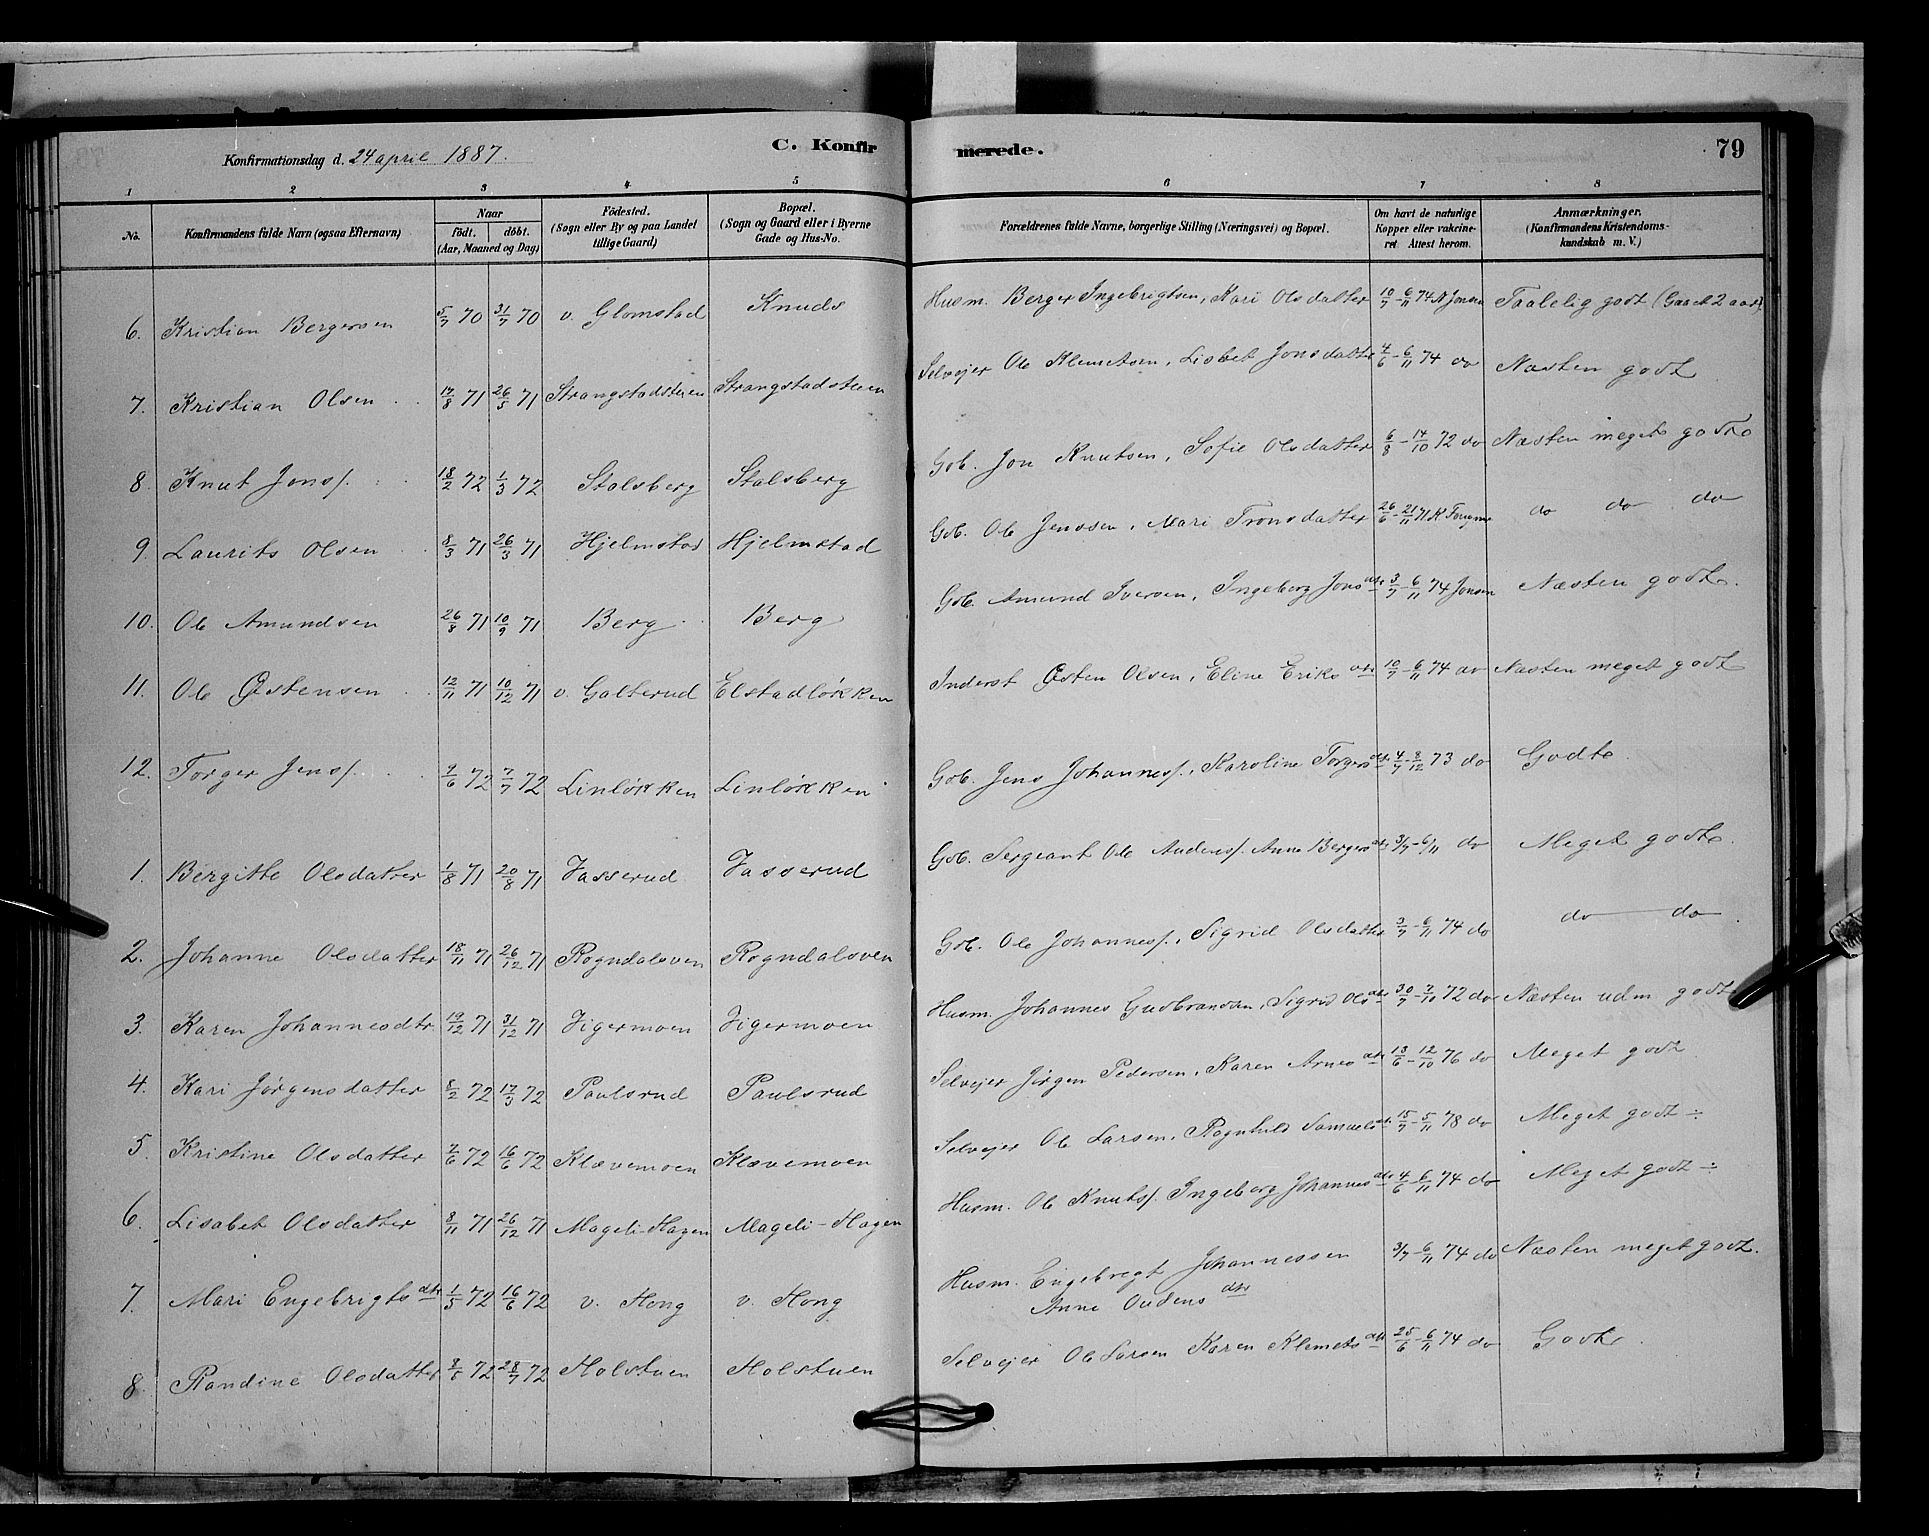 Konfirmationsdag d. 24 april 1887. C. Konfirmerede. 79
1 2 3 4 5 6 7 8
No. Konfirmandens fulde Navn (ogsaa Efternavn) Naar født. døbt. (Aar, Maaned og Dag) Fødested. (Sogn eller By og paa Landet tillige Gaard) Bopæl. (Sogn og Gaard eller i Byerne Gade og Hus-No. Forældrenes fulde Navne, borgerlige Stilling (Næringsvei) og Bopæl. Om havt de naturlige Kopper eller vakcineret. Attest herom. Anmærkninger. (Konfirmandens Kristendomskundskab m. V.)
6. Kristian Bergersen 5/7 70 31/7 70 v. Glomstad Knuds Husm. Berger Ingebrigtsen, Kari Olsdatter 10/7 - 6/11 74 N Jonsen Taalelig godt (Gaaet 2 aar)
7. Kristian Olsen 71 26/5 71 Strangstadstuen Strangstadstuen Selvejer Ole Klemetsen, Lisbet Jonsdatter 4/6 - 6/11 74 do Næsten godt
8. Knut Jons/. 18/2 72 1/3 72 Stalsberg Stalsberg Gbr. Jon Knutsen, Sofie Olsdatter 6/8 - 14/10 72 do Næsten meget godt
9. Laurits Olsen 8/3 71 26/3 71 Hjelmstad Hjelmstad Gbr. Ole Jenssen, Mari Tronsdatter 26/6 - 21/11 71 do do do
10. Ole Amundsen 26/8 71 10/9 71 Berg Berg Gbr. Amund Iversen, Ingeborg Jonsdtr 3/7 - 6/11 74 Jonsen Næsten godt.
11. Ole Østensen 12/11 71 10/12 71 v. Galterud Elstadløkken Inderst Østen Olsen, Eline Eriksdtr 10/7 - 6/11 74 do Næsten meget godt
12. Torger Jens/. 9/6 72 7/7 72 Linløkken Linløkken Gbr. Jens Johannes/., Karoline Torgersdtr 4/7 - 8/12 73 do Godt.
1. Bergitte Olsdatter 1/8 71 20/8 71 Jasserud Jasserud Gbr. Sergeant Ole Anders/. Anne Bergersdtr 3/7 - 6/11 do Meget godt.
2. Johanne Olsdatter 18/11 71 26/12 71 Rogndalsven Rogndalsven Gbr. Ole Johannes/., Sigrid Olsdatter 3/7 - 6/11 74 do do do
3. Karen Johannesdtr 19/12 71 31/12 71 Jigermoen Jigermoen Husm. Johannes Gudbrandsen, Sigrid Olsdtr 30/7 - 7/10 72 do Næsten udm godt
4. Kari Jørgensdatter 8/2 72 17/3 72 Paulsrud Paulsrud Selvejer Jørgen Pedersen, Karen Arnesdtr 18/6 - 12/10 76 do Meget godt
5. Kristine Olsdatter 7/6 72 16/6 72 Klævemoen Klævemoen Selvejer Ole Larsen, Ragnhild Samuelsdtr 15/7 - 5/11 78 do Meget godt ÷
6. Lisabet Olsdatter 8/11 71 26/12 71 Mageli-Hagen Mageli-Hagen Husm. Ole Knuts/. Ingeborg Johannesdtr 4/6 - 6/11 74 do Meget godt ÷
7. Mari Engebrigtsdtr 1/5 72 16/6 72 v. Hong v. Hong Husm. Engebregt Johannessen 3/7 - 6/11 74 do Næsten meget godt.
Anne Oudensdtr
8. Randine Olsdatter 72 28/7 72 Holstuen Holstuen Selvejer Ole Larsen Karen Klemetsdtr 25/6 - 6/11 74 do Godt.